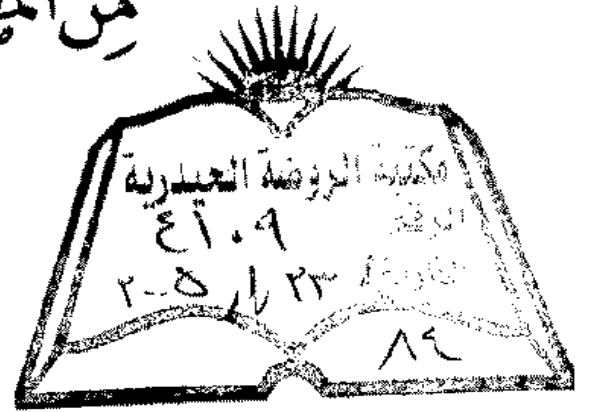 من
مكتبة الروضة الحيدرية
الرقم
٤١٠٩
التاريخ ٢٣ / ١ / ٢٠٠٥
٨٤